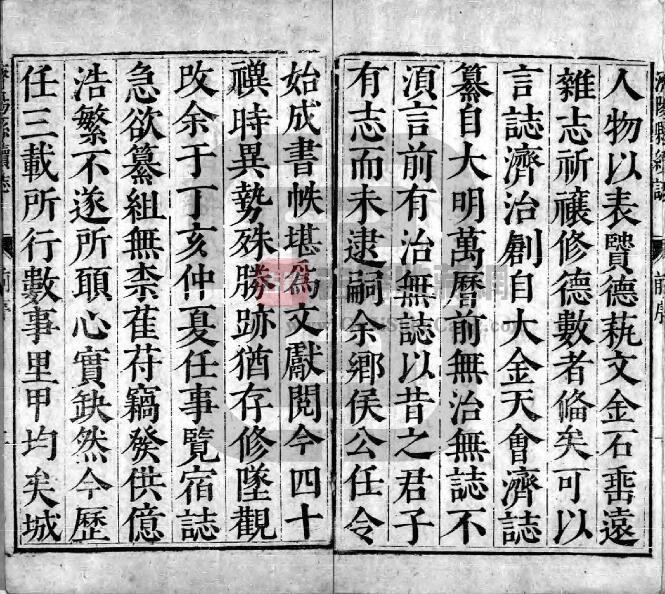 人物以表賢德埶文金石垂遠
雜志祈禳修德數者俻矣可以
言誌濟治創自大金天會濟誌
纂自大明萬曆前無治無誌不
湏言前有治無誌以昔之君子
有志而未逮嗣余鄉侯公任令
始成書帙堪爲文獻閱今四十
禩時異勢殊勝跡猶存修墜觀
攺余于丁亥仲夏任事覽宿誌
急欲纂組無柰萑苻竊發供億
浩繁不遂所頋心實缺然今歷
任三載所行數事里甲均矣城